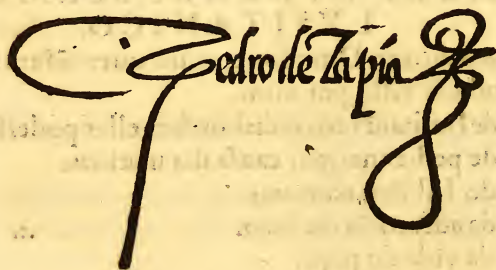 Pedro de Zapia